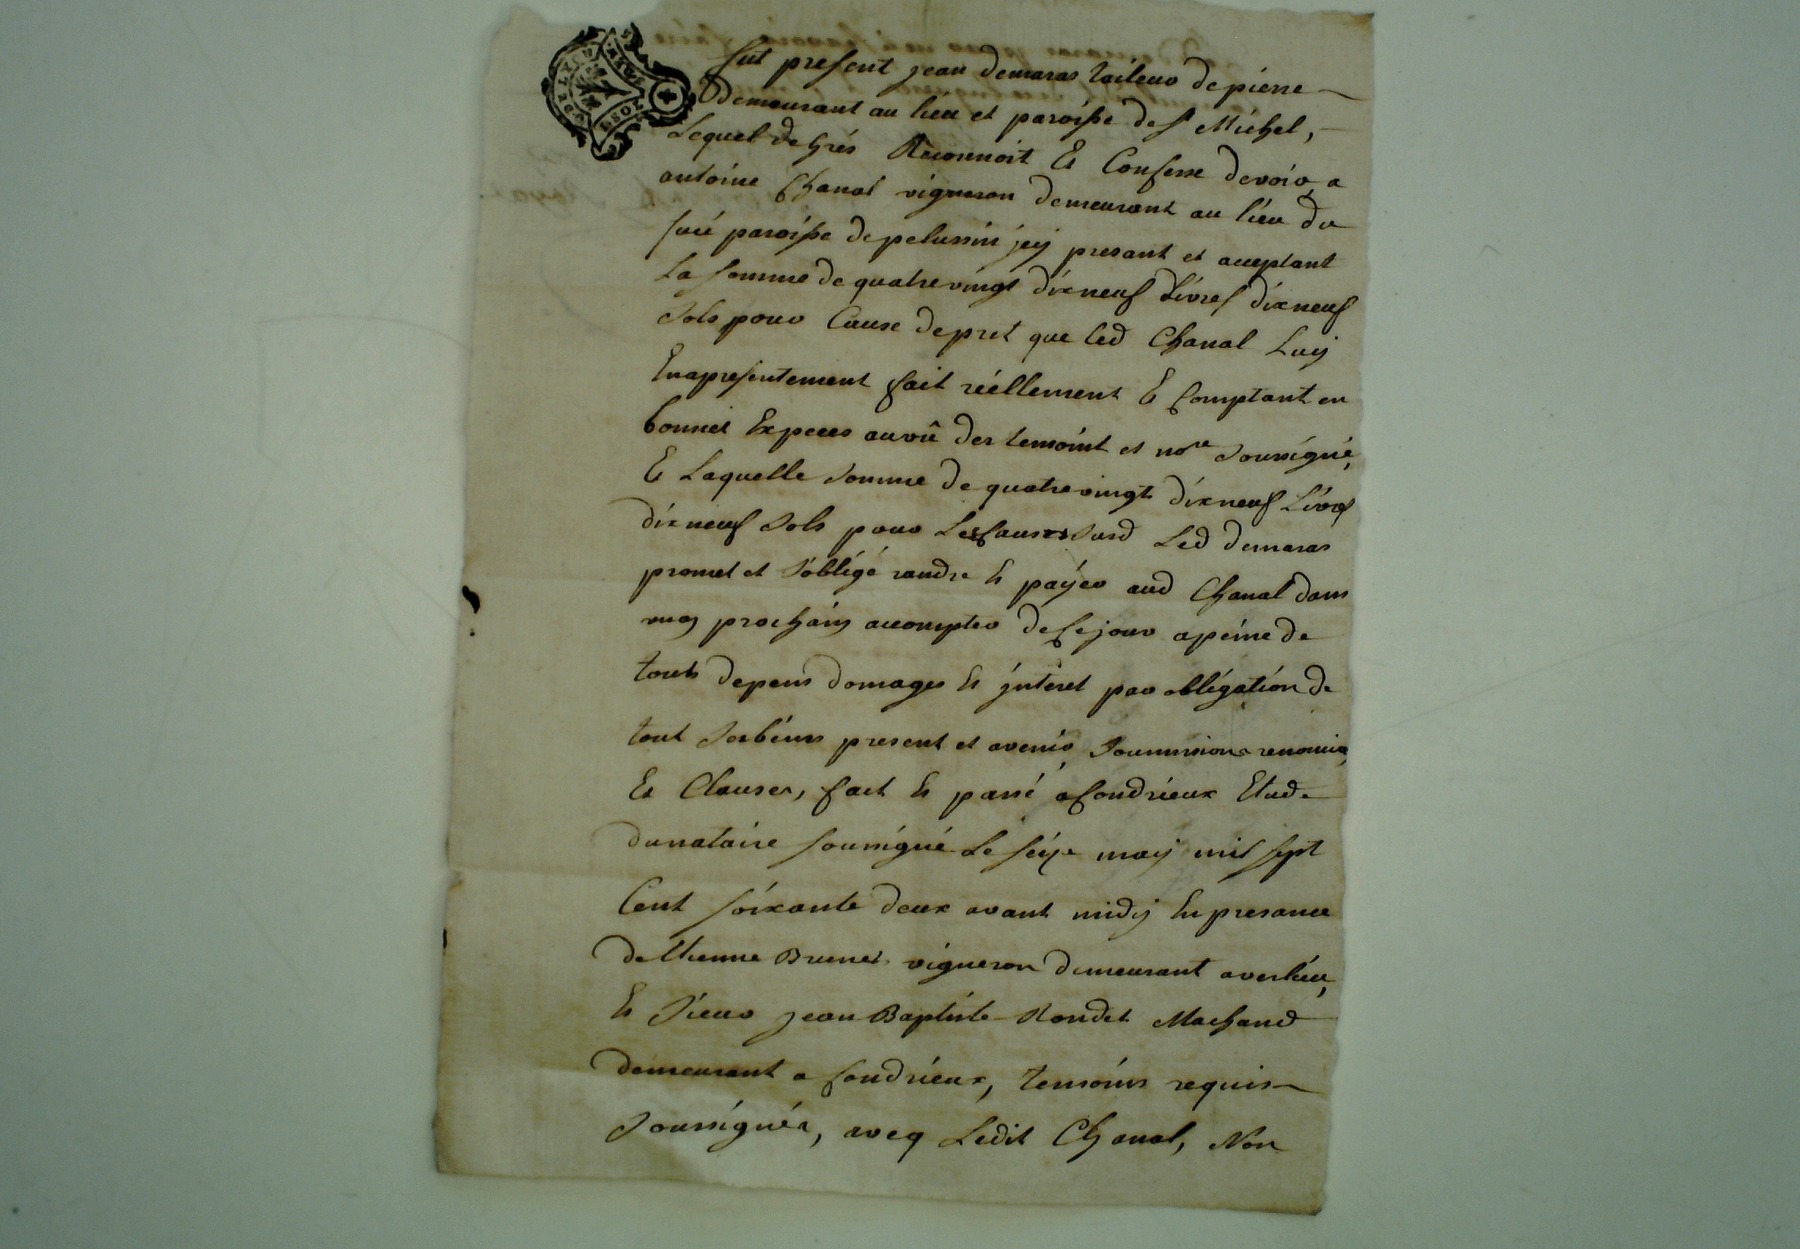 fut present jean demaras tailleur de pierre
demeurant au lieu et paroisse de st Michel,
Lequel de Grés Reconnoit Et Confesse devoir a
antoine Chanal vigneron demeurant au lieu du
paroisse de pelussin jcy presant et acceptant
La somme de quatre vingt dix neuf Livres dix neuf
sols pour Cause de pret que led Chanal Luy
En a presentement fait réellement Et Comptant en
bonnes Especes au vû des temoint et nore soussigné,
Et Laquelle somme de quatre vingt dix neuf Livres
dix neuf sols pour Les Causes susd Led demaras
promet et s'obligé randre Et payer aud Chanal dans
prochain acompter de Ce jour a peine de
touts depens domages Et jnteret par obligation de
tout ses biens present et avenir, soumission renoncia,
Et Clauses, fait Et passé a Condrieux Etude
du nataire soussigné Le seize may mil sept
Cent soixante deux avant midy En presance
de Etienne Brunet vigneron demeurant a verlieu,
Et sieur jean Baptiste Rondet Machand
demeurant a Condrieux, temoins requis
soussignés, aveq Ledit Chanal, Non